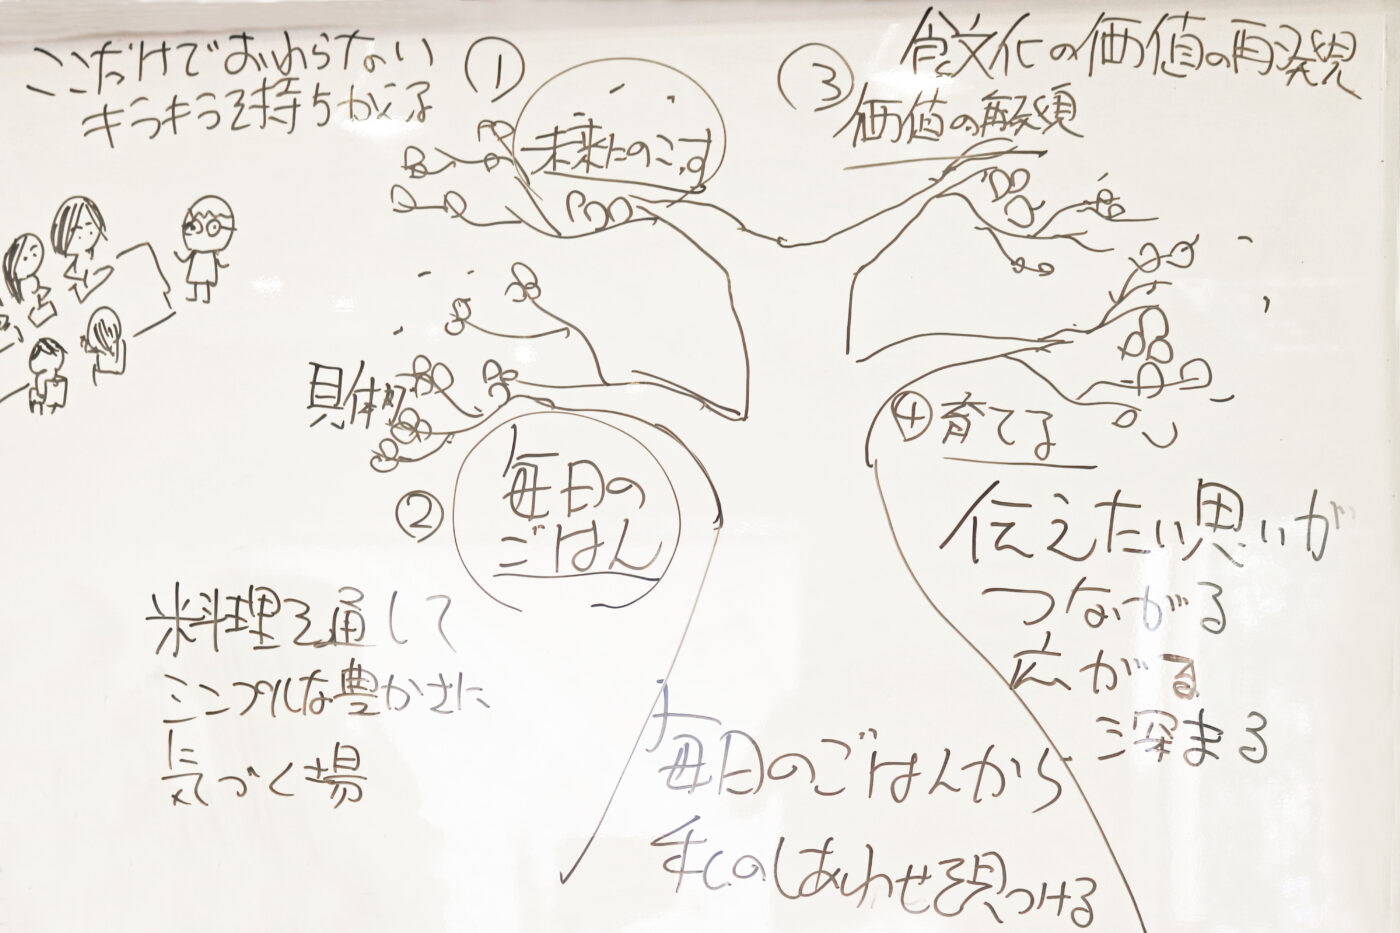 ここだけでおわらない
キラキラを持ちかえる
①
未来にのこす
③
食文化の価値の再発見
価値の再発見
具体的
②
毎日の
ごはん
④育てる
伝えたい思いが
つながる
広がる
深まる
米料理を通して
シンプルな豊かさに
気づく場
毎日のごはんから
私のしあわせを見つける